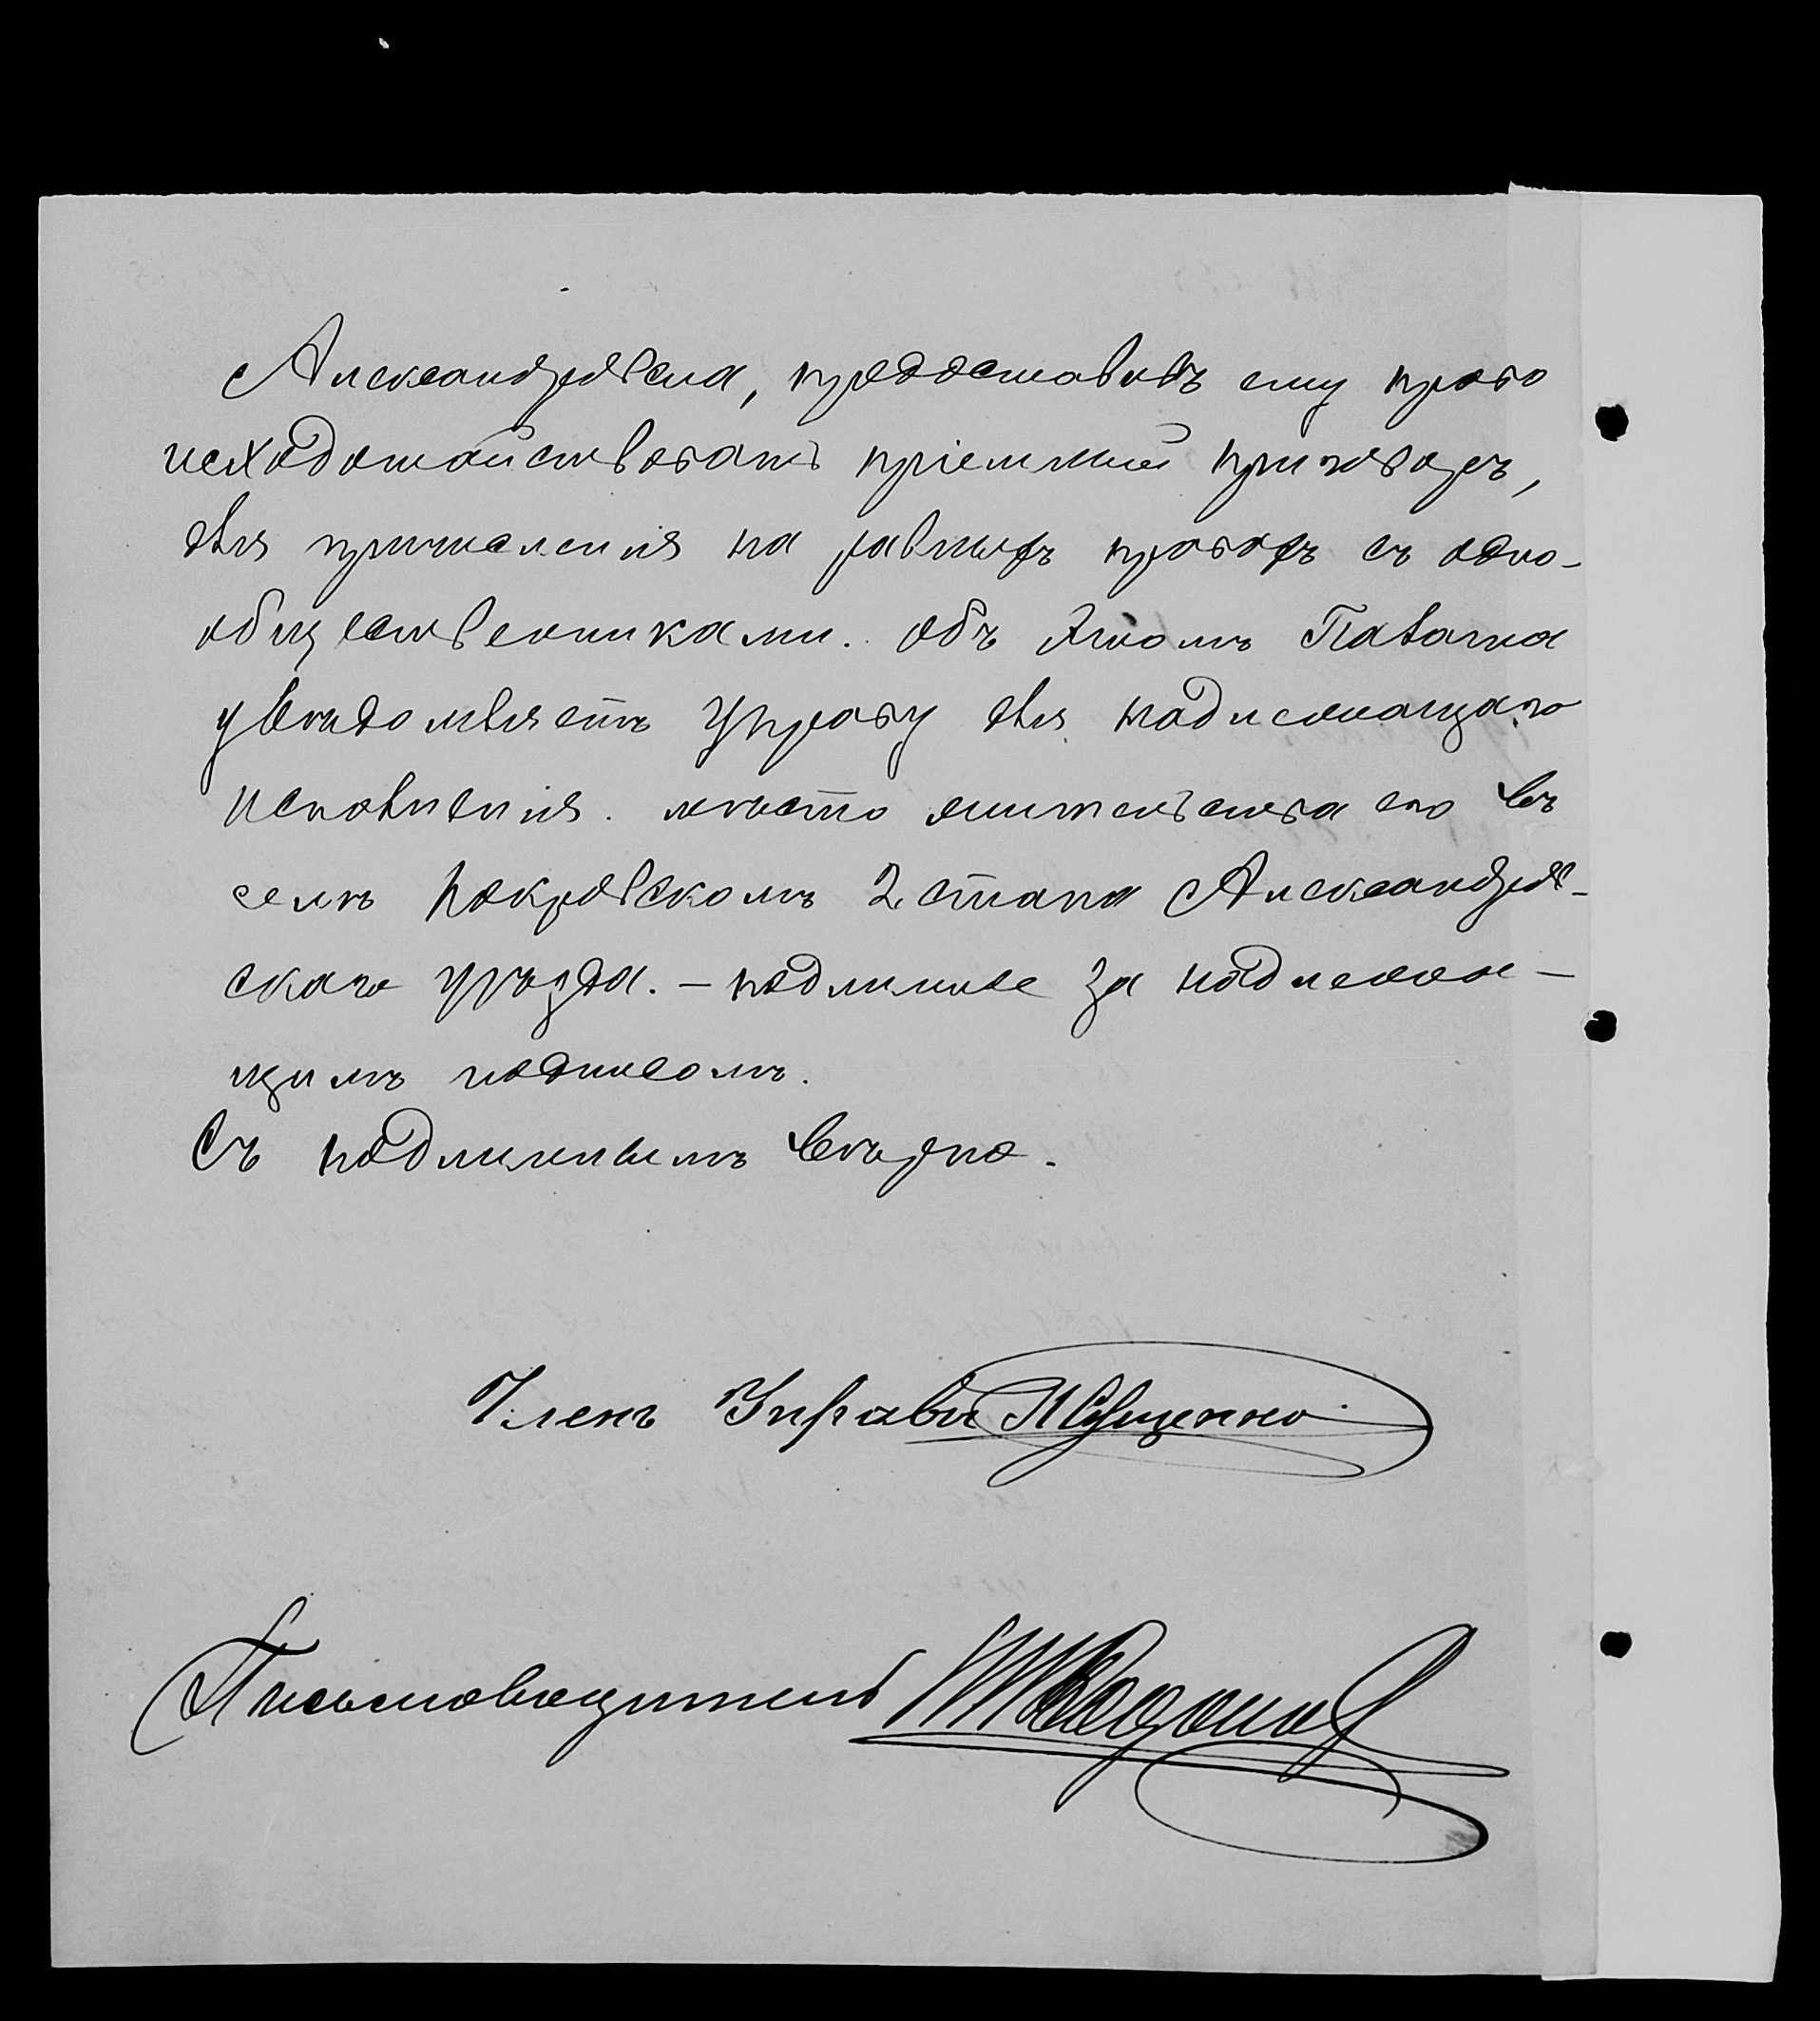 Александровска, предоставивъ ему право
исходотайствовать пріемный приговоръ,
для причисленія на равныхъ правахъ съ одно-
общественниками. Объ этомъ Палата
увѣдомляетъ Управу для надлежащаго
исполненія. мѣсто жительства его въ
селѣ Покровскомъ 2 стана Александров-
скаго уѣзда. – подлинное за надлежа-
щимъ подписомъ.
Съ подлиннымъ вѣрно.
Членъ Управы
Письмоводитель